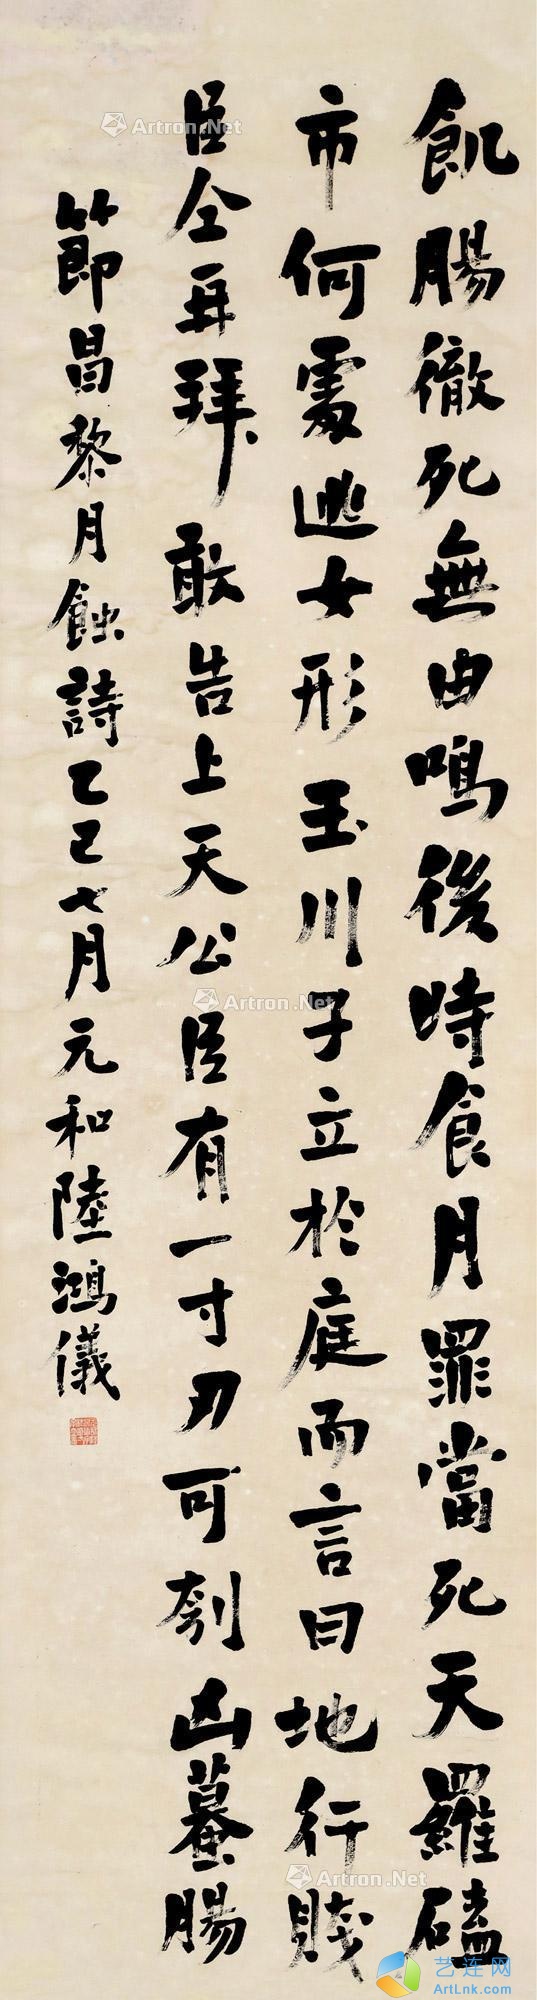 飢腸徹死無由鳴後時食月罪當死天羅磕
市何處逃女形玉川子立於庭而言曰地行賤
臣仝再拜敢告上天公臣有一寸刃可刳凶蟇腸
節昌黎月蝕詩乙巳七月元和陸鴻儀
Artron.Net
Artron.Net
Artron.Net
Artron.Net
艺连网
ArtLnk.com